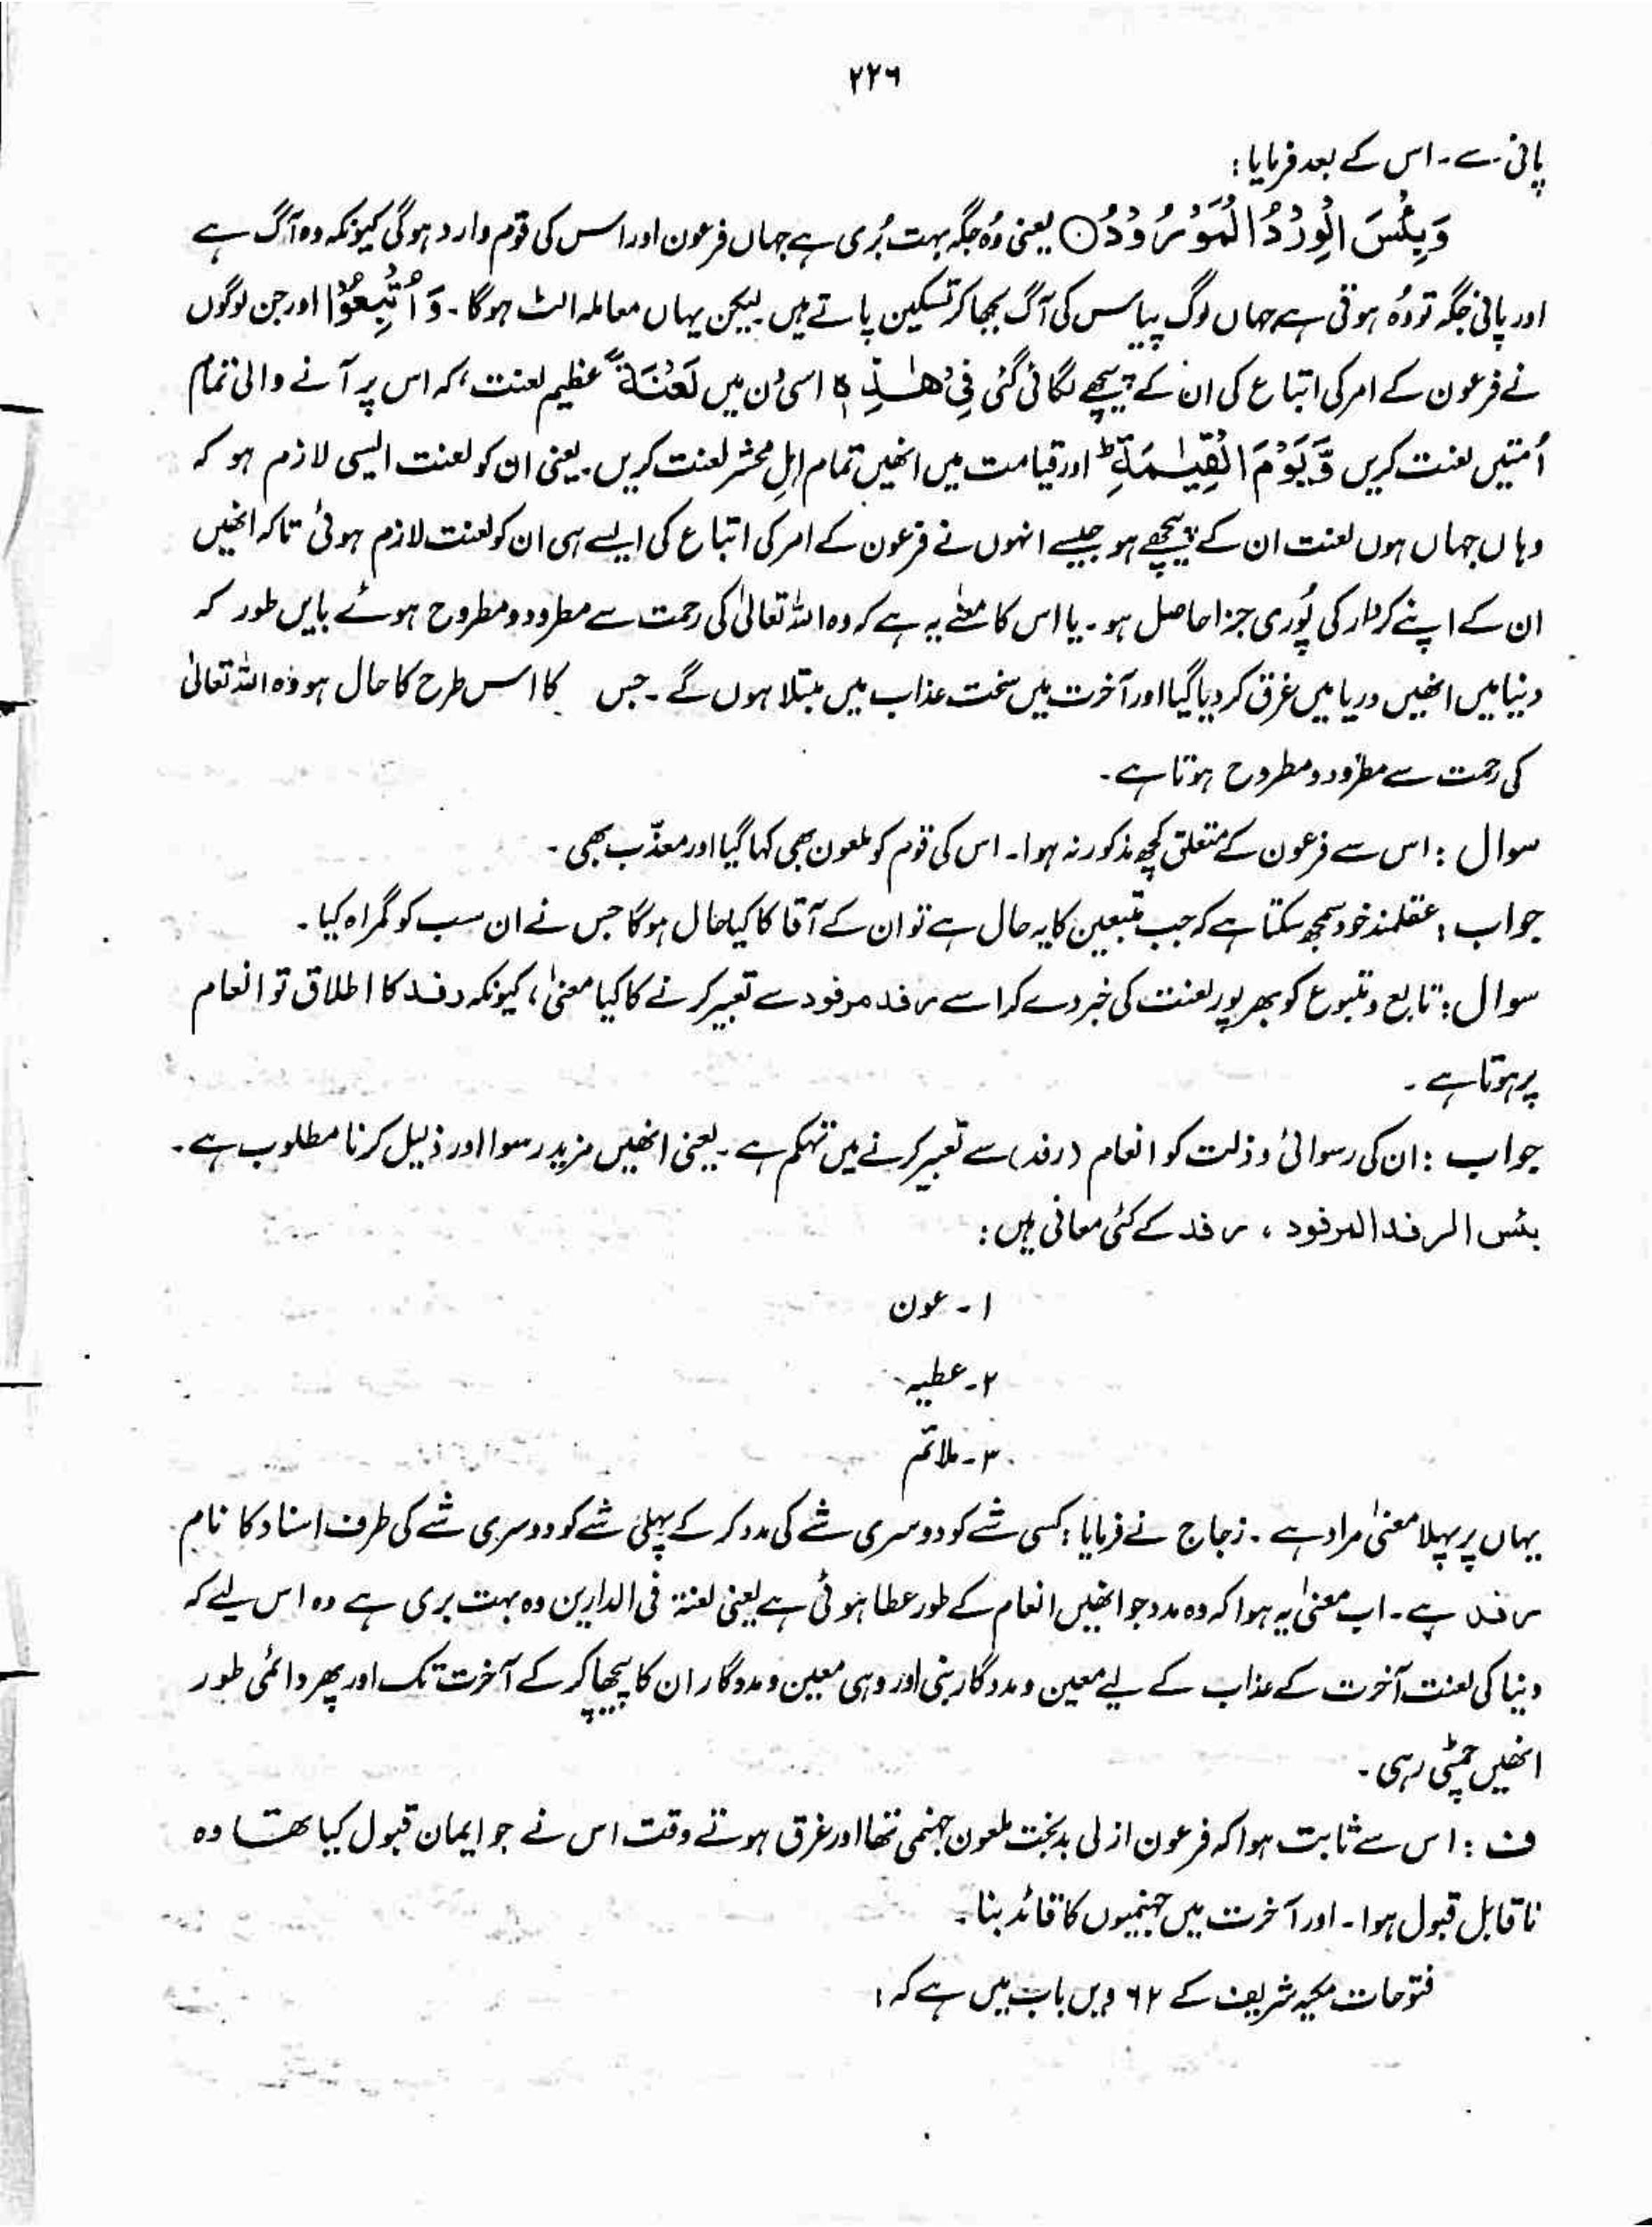 ۲۲۶
پانی ہے۔ اس کے بعد فرمایا:
وَبِئْسَ الْوِرْدُ الْمَوْرُوْدُ ۝ یعنی وُہ جگہ بہت بُری ہے جہاں فرعون اور اس کی قوم وارد ہو گی کیونکہ وہ آگ ہے
اور پانی جگہ تو وُہ ہوتی ہے جہاں لوگ پیاس کی آگ بجھا کر تسکین پاتے ہیں لیکن یہاں معاملہ الٹ ہوگا۔ وَ اُتْبِعُوْا اور جن لوگوں
نے فرعون کے امر کی اتباع کی ان کے پیچھے لگائی گئی فِیْ هٰذِهٖ اسی دُن میں لَعْنَةً عظیم لعنت، کہ اس پر آنے والی تمام
اُمتیں لعنت کریں وَّيَوْمَ الْقِيٰمَةِ ؕ اور قیامت میں انھیں تمام اہلِ محشر لعنت کریں۔ یعنی ان کو لعنت ایسی لازم ہو کہ
وہاں جہاں ہوں لعنت ان کے پیچھے ہو جیسے انہوں نے فرعون کے امر کی اتباع کی ایسے ہی ان کو لعنت لازم ہوئی تاکہ انھیں
ان کے اپنے کردار کی پُوری جزا حاصل ہو۔ یا اس کا معنے یہ ہے کہ وہ اللہ تعالیٰ کی رحمت سے مطرود و مطروح ہوئے بایں طور کہ
دنیا میں انھیں دریا میں غرق کر دیا گیا اور آخرت میں سخت عذاب میں مبتلا ہوں گے۔ جس کا اس طرح کا حال ہو وُہ اللہ تعالیٰ
کی رحمت سے مطرود و مطروح ہوتا ہے۔
سوال : اس سے فرعون کے متعلق کچھ مذکور نہ ہوا۔ اس کی قوم کو ملعون بھی کہا گیا اور معذّب بھی۔
جواب : عقلمند خود سمجھ سکتا ہے کہ جب متبعین کا یہ حال ہے تو ان کے آقا کا کیا حال ہو گا جس نے ان سب کو گمراہ کیا۔
سوال : تابع و متبوع کو بھر پور لعنت کی خبر دے کر اسے رفد مرفود سے تعبیر کرنے کا کیا معنیٰ، کیونکہ رفد کا اطلاق تو انعام
پر ہوتا ہے۔
جواب : ان کی رسوائی و ذلت کو انعام (رفد) سے تعبیر کرنے میں تہکم ہے۔ یعنی انھیں مزید رسوا اور ذلیل کرنا مطلوب ہے۔
بئس الرفد المرفود ، رفد کے کئی معانی ہیں:
۱۔ عون
۲۔ عطیہ
۳۔ ملائم
یہاں پر پہلا معنیٰ مراد ہے۔ زجاج نے فرمایا : کسی شے کو دوسری شے کی مدد کر کے پہلی شے کو دوسری شے کی طرف اسناد کا نام
رفد ہے۔ اب معنیٰ یہ ہوا کہ وہ مدد جو انھیں انعام کے طور عطا ہوئی ہے یعنی لعنۃ فی الدارین وہ بہت بری ہے وہ اس لیے کہ
دنیا کی لعنت آخرت کے عذاب کے لیے معین و مددگار بنی اور وہی معین و مددگار ان کا پیچھا کر کے آخرت تک اور پھر دائمی طور
انھیں چمٹی رہی۔
ف : اس سے ثابت ہوا کہ فرعون ازلی بدبخت ملعون جہنمی تھا اور غرق ہوتے وقت اس نے جو ایمان قبول کیا تھا وہ
ناقابل قبول ہوا۔ اور آخرت میں جہنمیوں کا قائد بنا۔
فتوحات مکیہ شریف کے ۶۲ ویں باب میں ہے کہ :